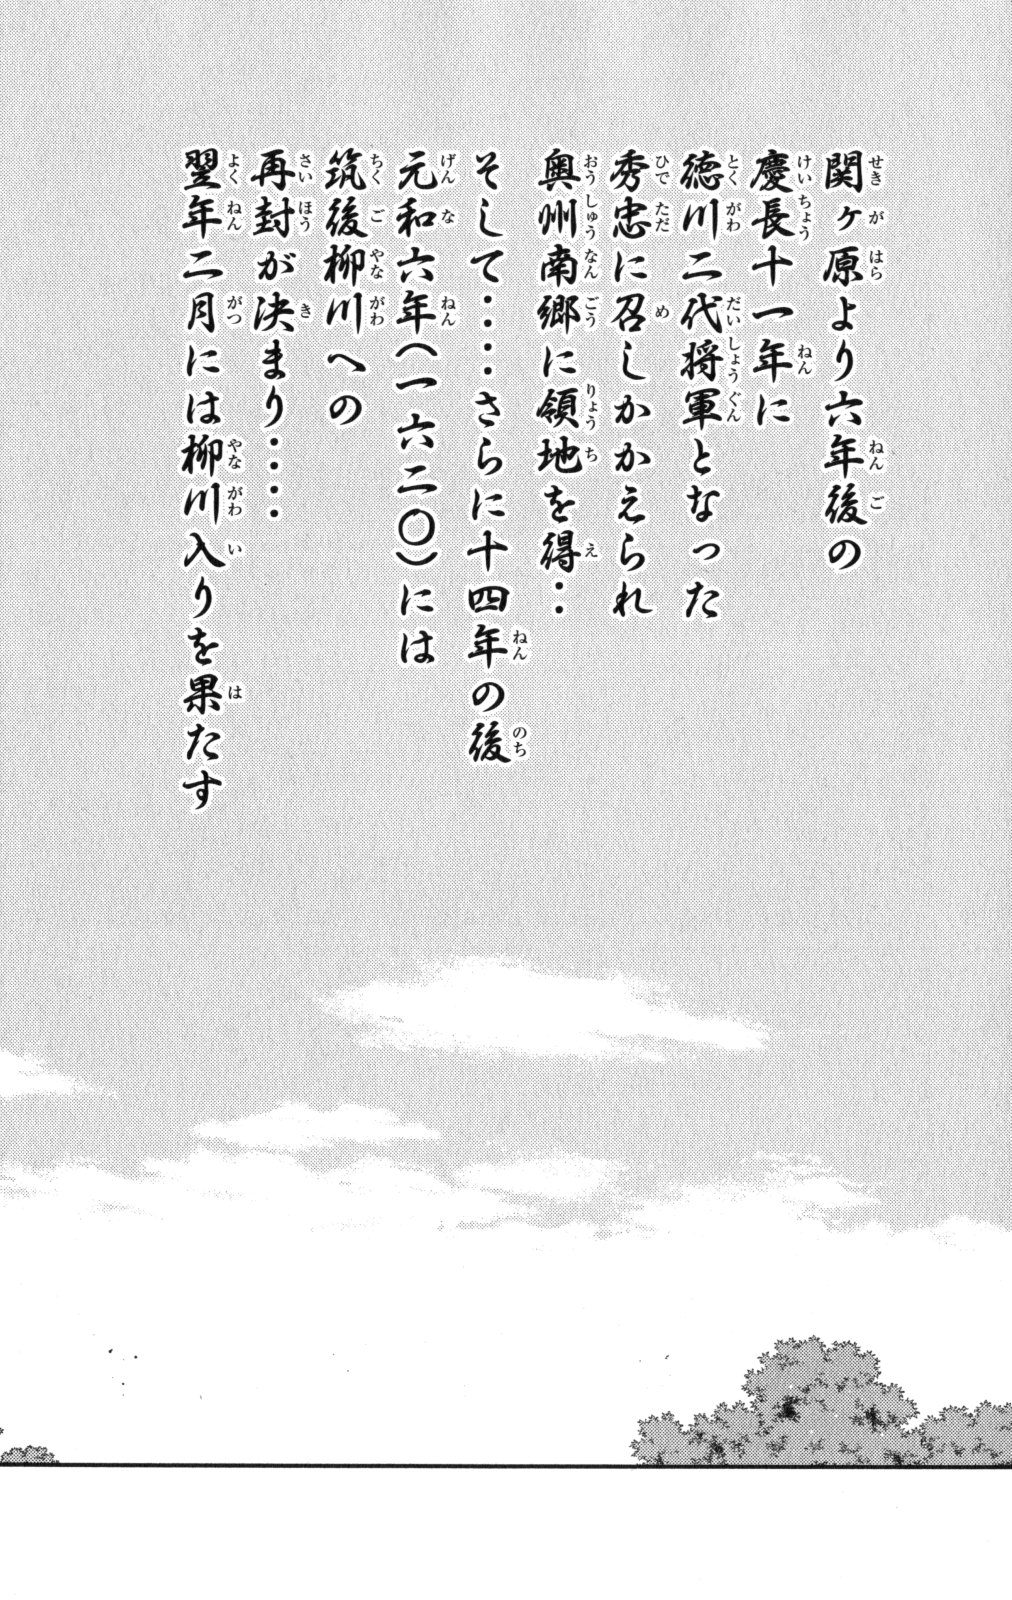 関ヶ原より六年後の
慶長十一年に
徳川二代将軍となった
秀忠に召しかかえられ
奥州南郷に領地を得‥
そして‥‥さらに十四年の後
元和六年(一六二〇)には
筑後柳川への
再封が決まり‥‥
翌年二月には柳川入りを果たす